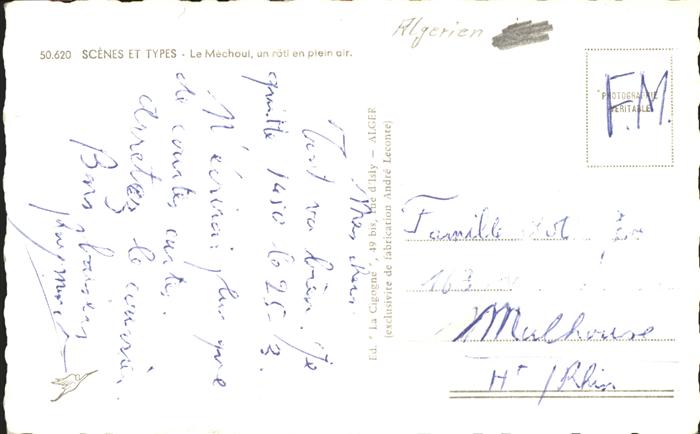 Algerien
50.620 SCÈNES ET TYPES - Le Méchoui, un rôti en plein air.
PHOTOGRAPHIE
VÉRITABLE
F.M.
Mes chers
Tout va bien. Je
quitte le 25-3.
N'écrirai plus que
de courtes cartes.
Arretez le courrier.
Bons baisers
Ed. "La Cigogne", 49 bis, Rue d'Isly — ALGER
(exclusivité de fabrication André Leconte)
Famille
163
Mulhouse
Ht / Rhin